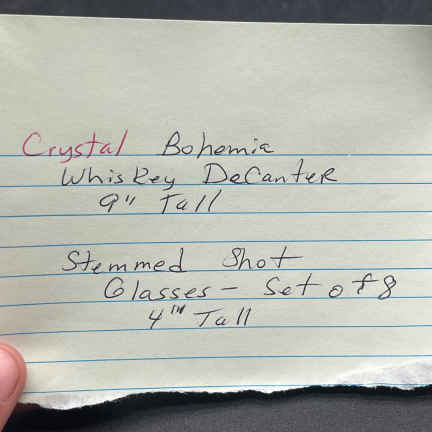 Crystal Bohemia
Whiskey DeCanteR
9" Tall
Stemmed Shot
Glasses - Set of 8
4" Tall